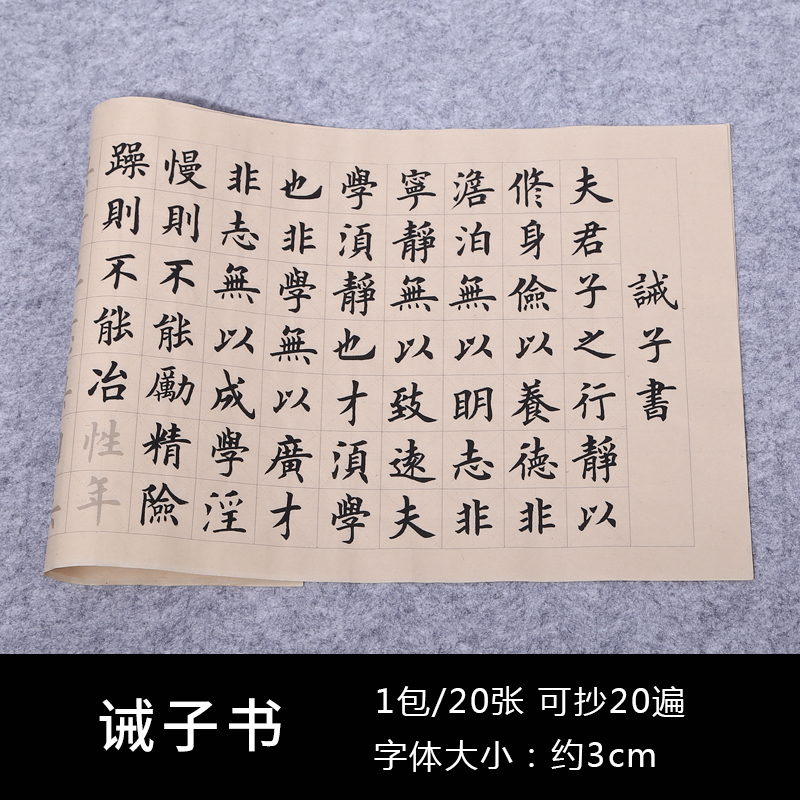 誡子書
夫君子之行靜以
修身儉以養德非
澹泊無以明志非
寧靜無以致遠夫
學須靜也才須學
也非學無以廣才
非志無以成學淫
慢則不能勵精險
躁則不能冶性年
诫子书
1包/20张 可抄20遍
字体大小：约3cm